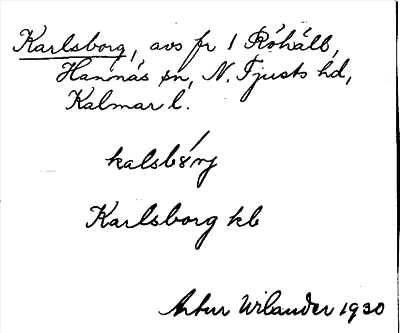 Karlsborg, avs fr 1 Röhäll,
Hannäs sn, N. Tjusts hd,
Kalmar l.
Karlsborg kb
Artur Wilander 1930